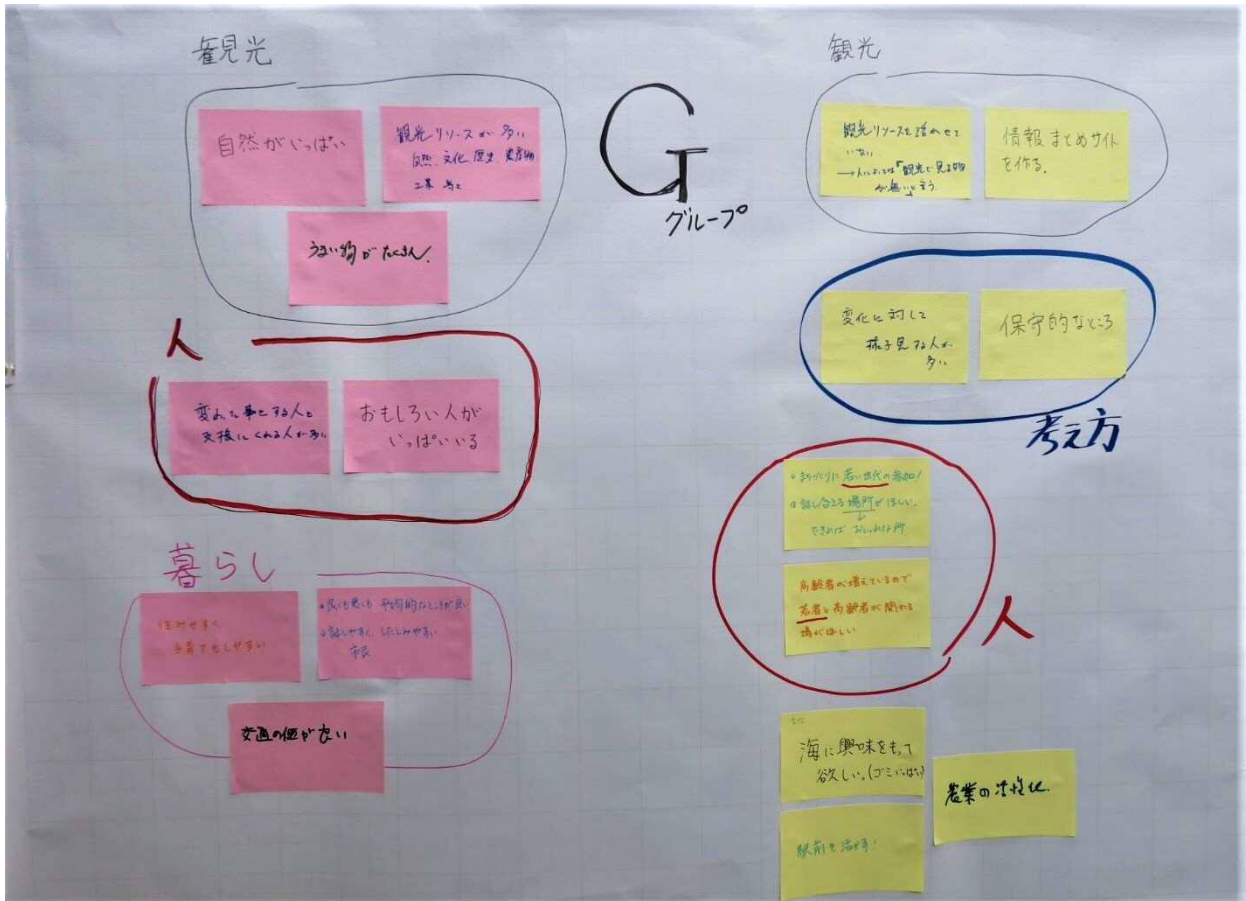 観光
自然がいっぱい
観光リソースが多い
自然、文化、歴史、農産物
工業 など
うまい物がたくさん!
人
変わった事をする人を
支援してくれる人が多い
おもしろい人が
いっぱいいる
暮らし
住みやすく
子育てもしやすい
・良くも悪くも 平均的なところが良い
・話しやすく、したしみやすい
市民
交通の便が良い
G
グループ
観光
観光リソースを活かせて
いない
→人によっては「観光で見る物
が無い」と言う
情報まとめサイト
を作る。
変化に対して
様子見する人が
多い
保守的なところ
考え方
・まちづくりに若い世代の参加!
・話し合える場所がほしい。
↓
できれば おしゃれな所
高齢者が増えているので
若者と高齢者が関わる
場がほしい
人
海に興味をもって
欲しい。(ゴミいっぱい)
農業の活性化
駅前を活かす!